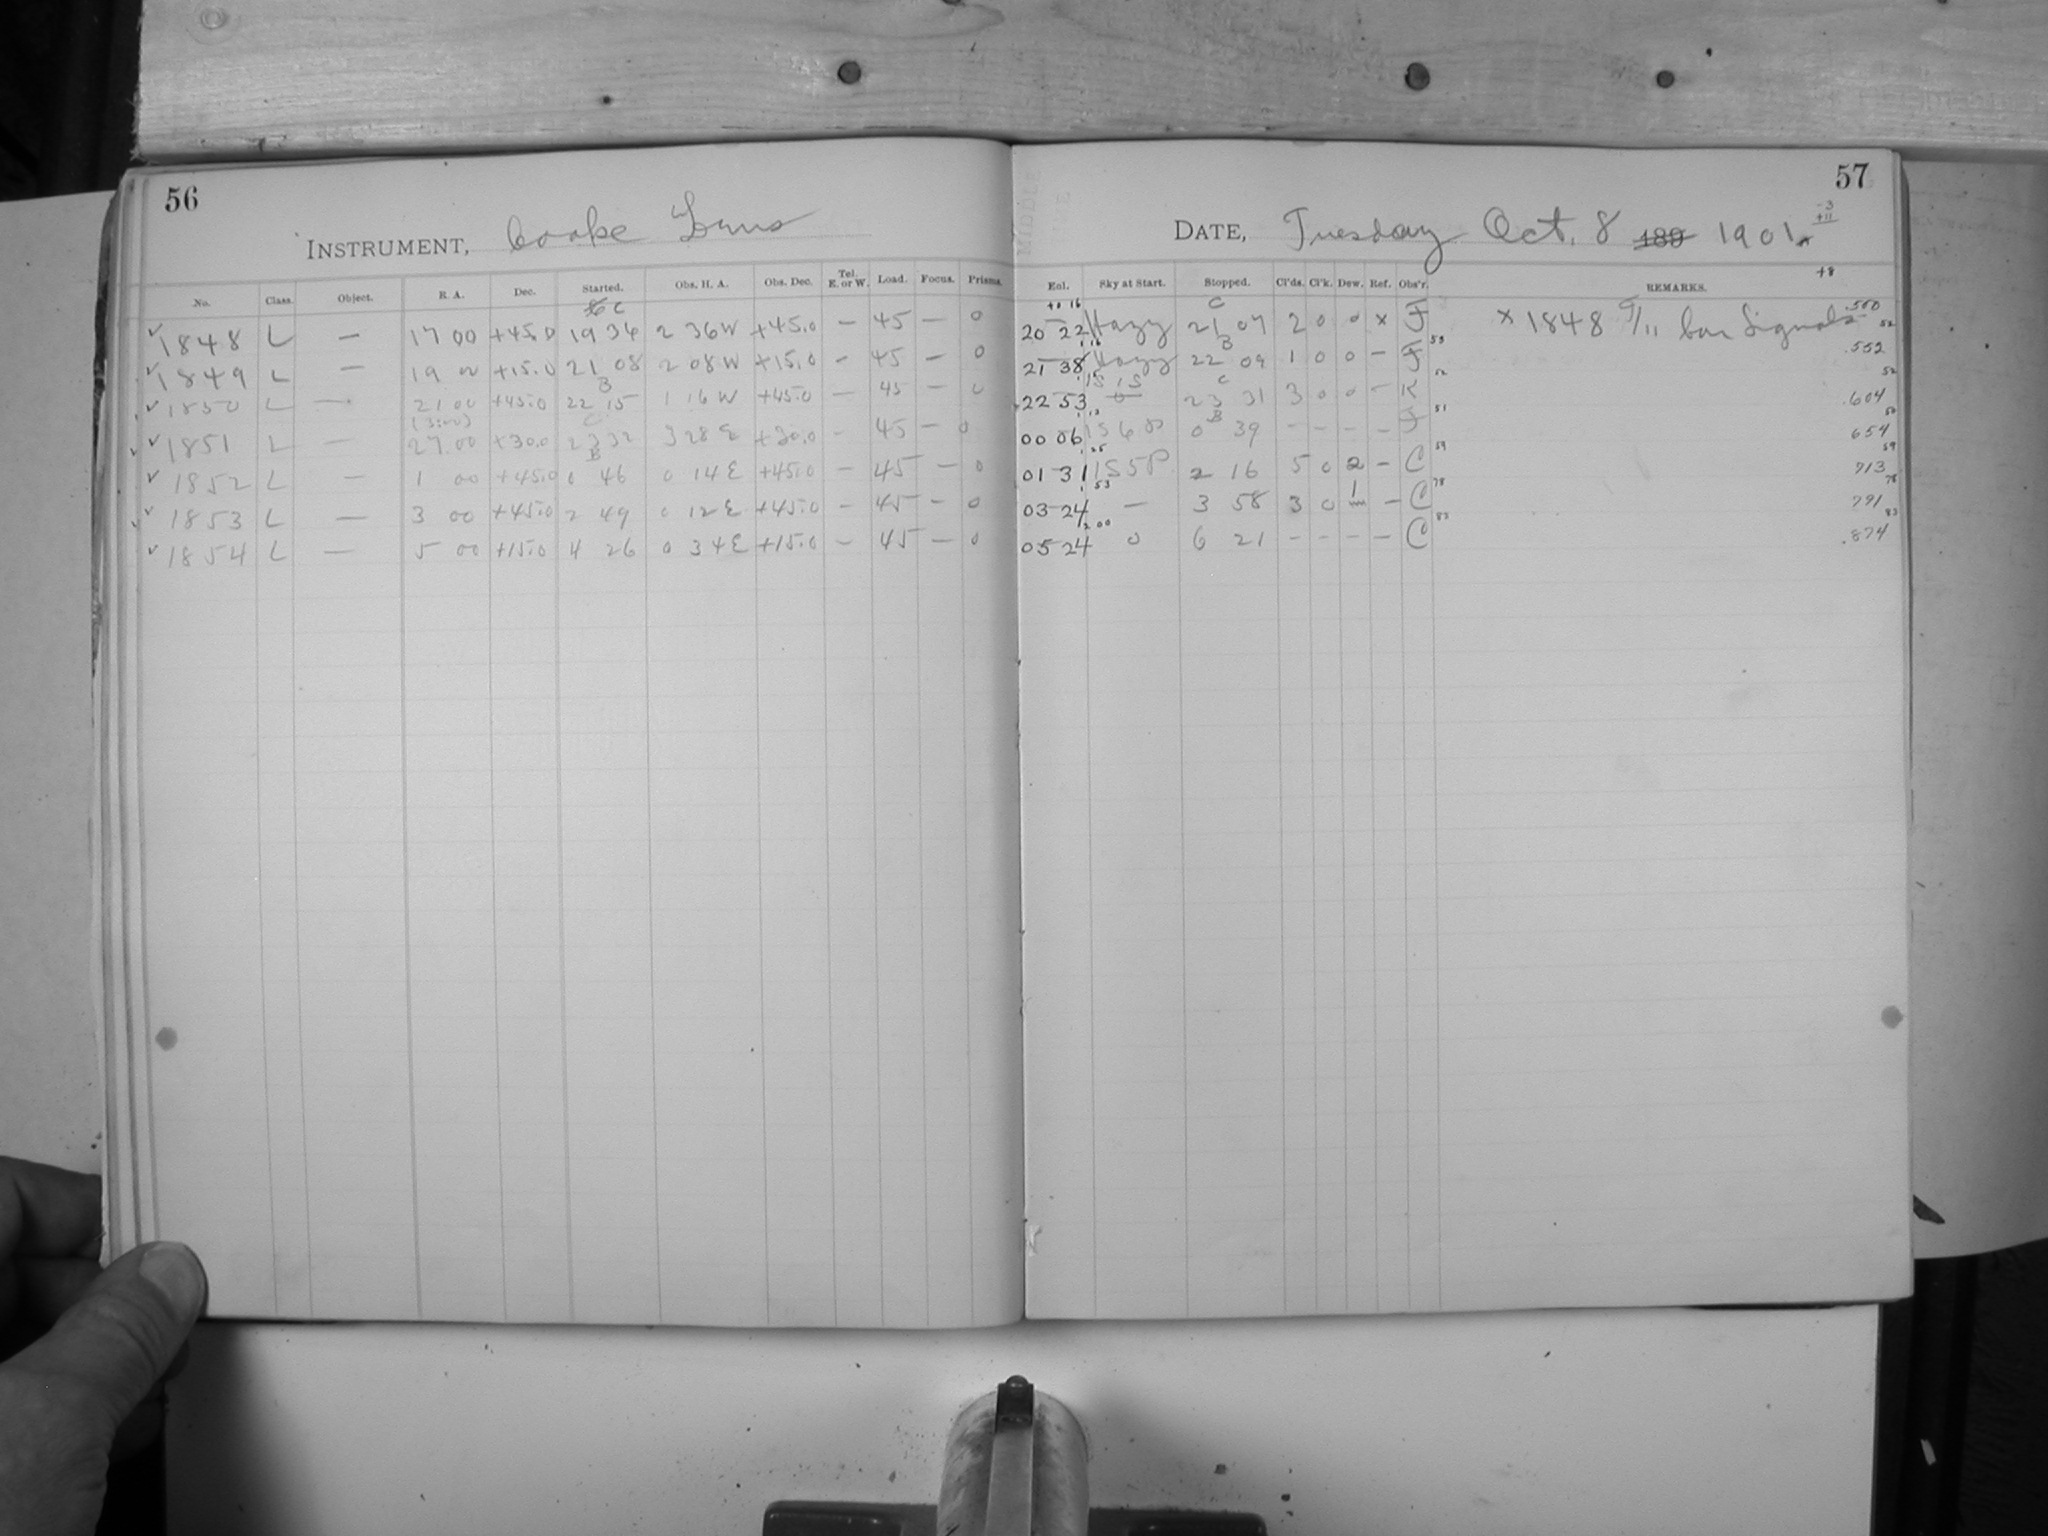 56
INSTRUMENT, Cooke Lens
No. Class. Object. R. A. Dec. Started. Obs. H. A. Obs. Dec. Tel. E. or W. Load. Focus. Prisms.
C
1848 L — 17 00 +45.0 19 34 2 36 W +45.0 — 45 — 0
1849 L — 19 00 +15.0 21 08 2 08 W +15.0 — 45 — 0
B
1850 L — 21 00 +45.0 22 15 1 16 W +45.0 — 45 — 0
(3:00) C
1851 L — 27 00 +30.0 23 32 3 28 E +30.0 — 45 — 0
B
1852 L — 1 00 +45.0 0 46 0 14 E +45.0 — 45 — 0
1853 L — 3 00 +45.0 2 49 0 12 E +45.0 — 45 — 0
1854 L — 5 00 +15.0 4 26 0 34 E +15.0 — 45 — 0
57
DATE, Tuesday Oct. 8 189 1901.
-3
+11
+8
Eol. Sky at Start. Stopped. Cl'ds. Cl'k. Dew. Ref. Obs'r. REMARKS.
C
20 22 Hazy 21 07 2 0 0 x F x 1848 bar Signals .500
52
B 53
21 38 Hazy 22 09 1 0 0 — F .552
52
C 52
22 53 1S 1S 23 31 3 0 0 — K .604
50
B 51
00 06 1S 6P 0 39 — — — — F 654
59
59
01 31 1S 5P 2 16 5 0 2 — C 713
78
78
03 24 — 3 58 3 0 1 — C 791
83
2 00 83
05 24 0 6 21 — — — — C .874